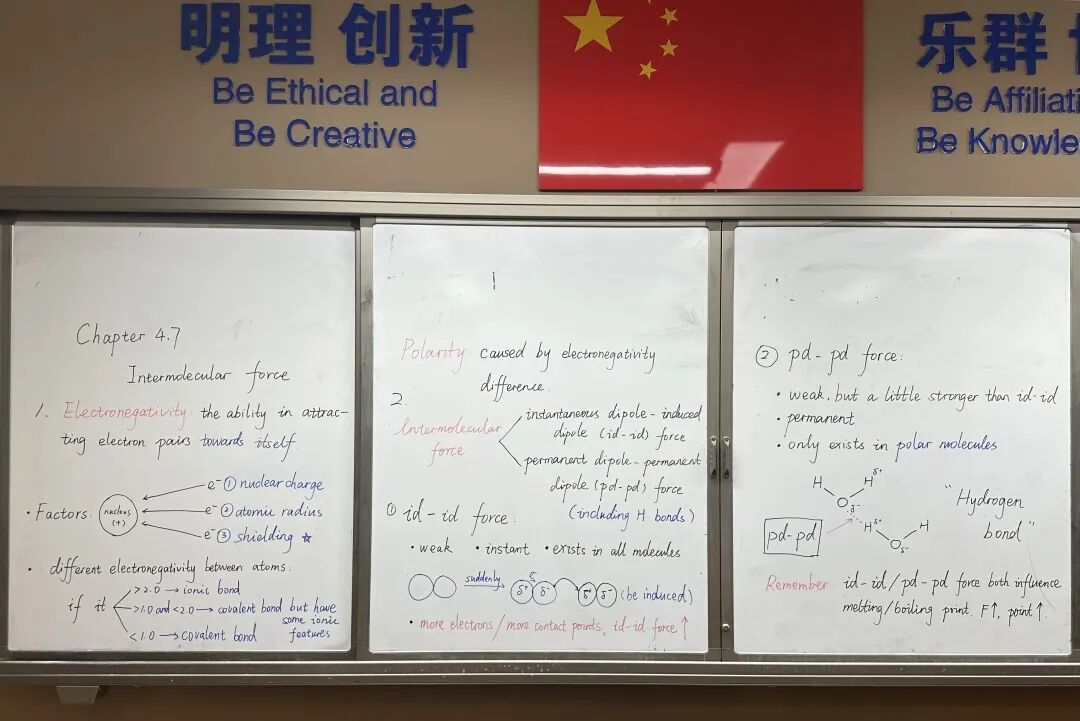 明理 创新
Be Ethical and
Be Creative
乐群
Be Affiliati
Be Knowle
Chapter 4.7
Intermolecular force
1. Electronegativity: the ability in attrac-
ting electron pairs towards itself.
• Factors:
nucleus
(+)
e⁻ ① nuclear charge
e⁻ ② atomic radius
e⁻ ③ shielding ☆
• different electronegativity between atoms:
if it
>2.0 → ionic bond
>1.0 and <2.0 → covalent bond but have
some ionic
features
<1.0 → covalent bond
Polarity: caused by electronegativity
difference.
2.
Intermolecular
force
instantaneous dipole-induced
dipole (id-id) force
permanent dipole-permanent
dipole (pd-pd) force
(including H bonds)
① id-id force:
• weak • instant • exists in all molecules
suddenly
δ+ δ- δ+ δ- (be induced)
• more electrons/more contact points, id-id force ↑
② pd-pd force:
• weak, but a little stronger than id-id
• permanent
• only exists in polar molecules
H O δ- H δ+
H δ+ O δ- H
pd-pd
"Hydrogen
bond"
Remember: id-id/pd-pd force both influence
melting/boiling print F↑, point↑.